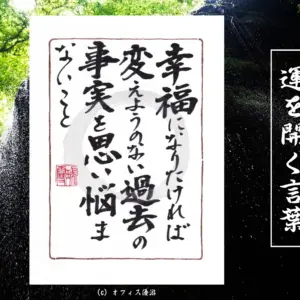 運を開く言葉
幸福になりたければ
変えようのない過去の
事実を思い悩ま
ないこと
(c) オフィス蓮沼